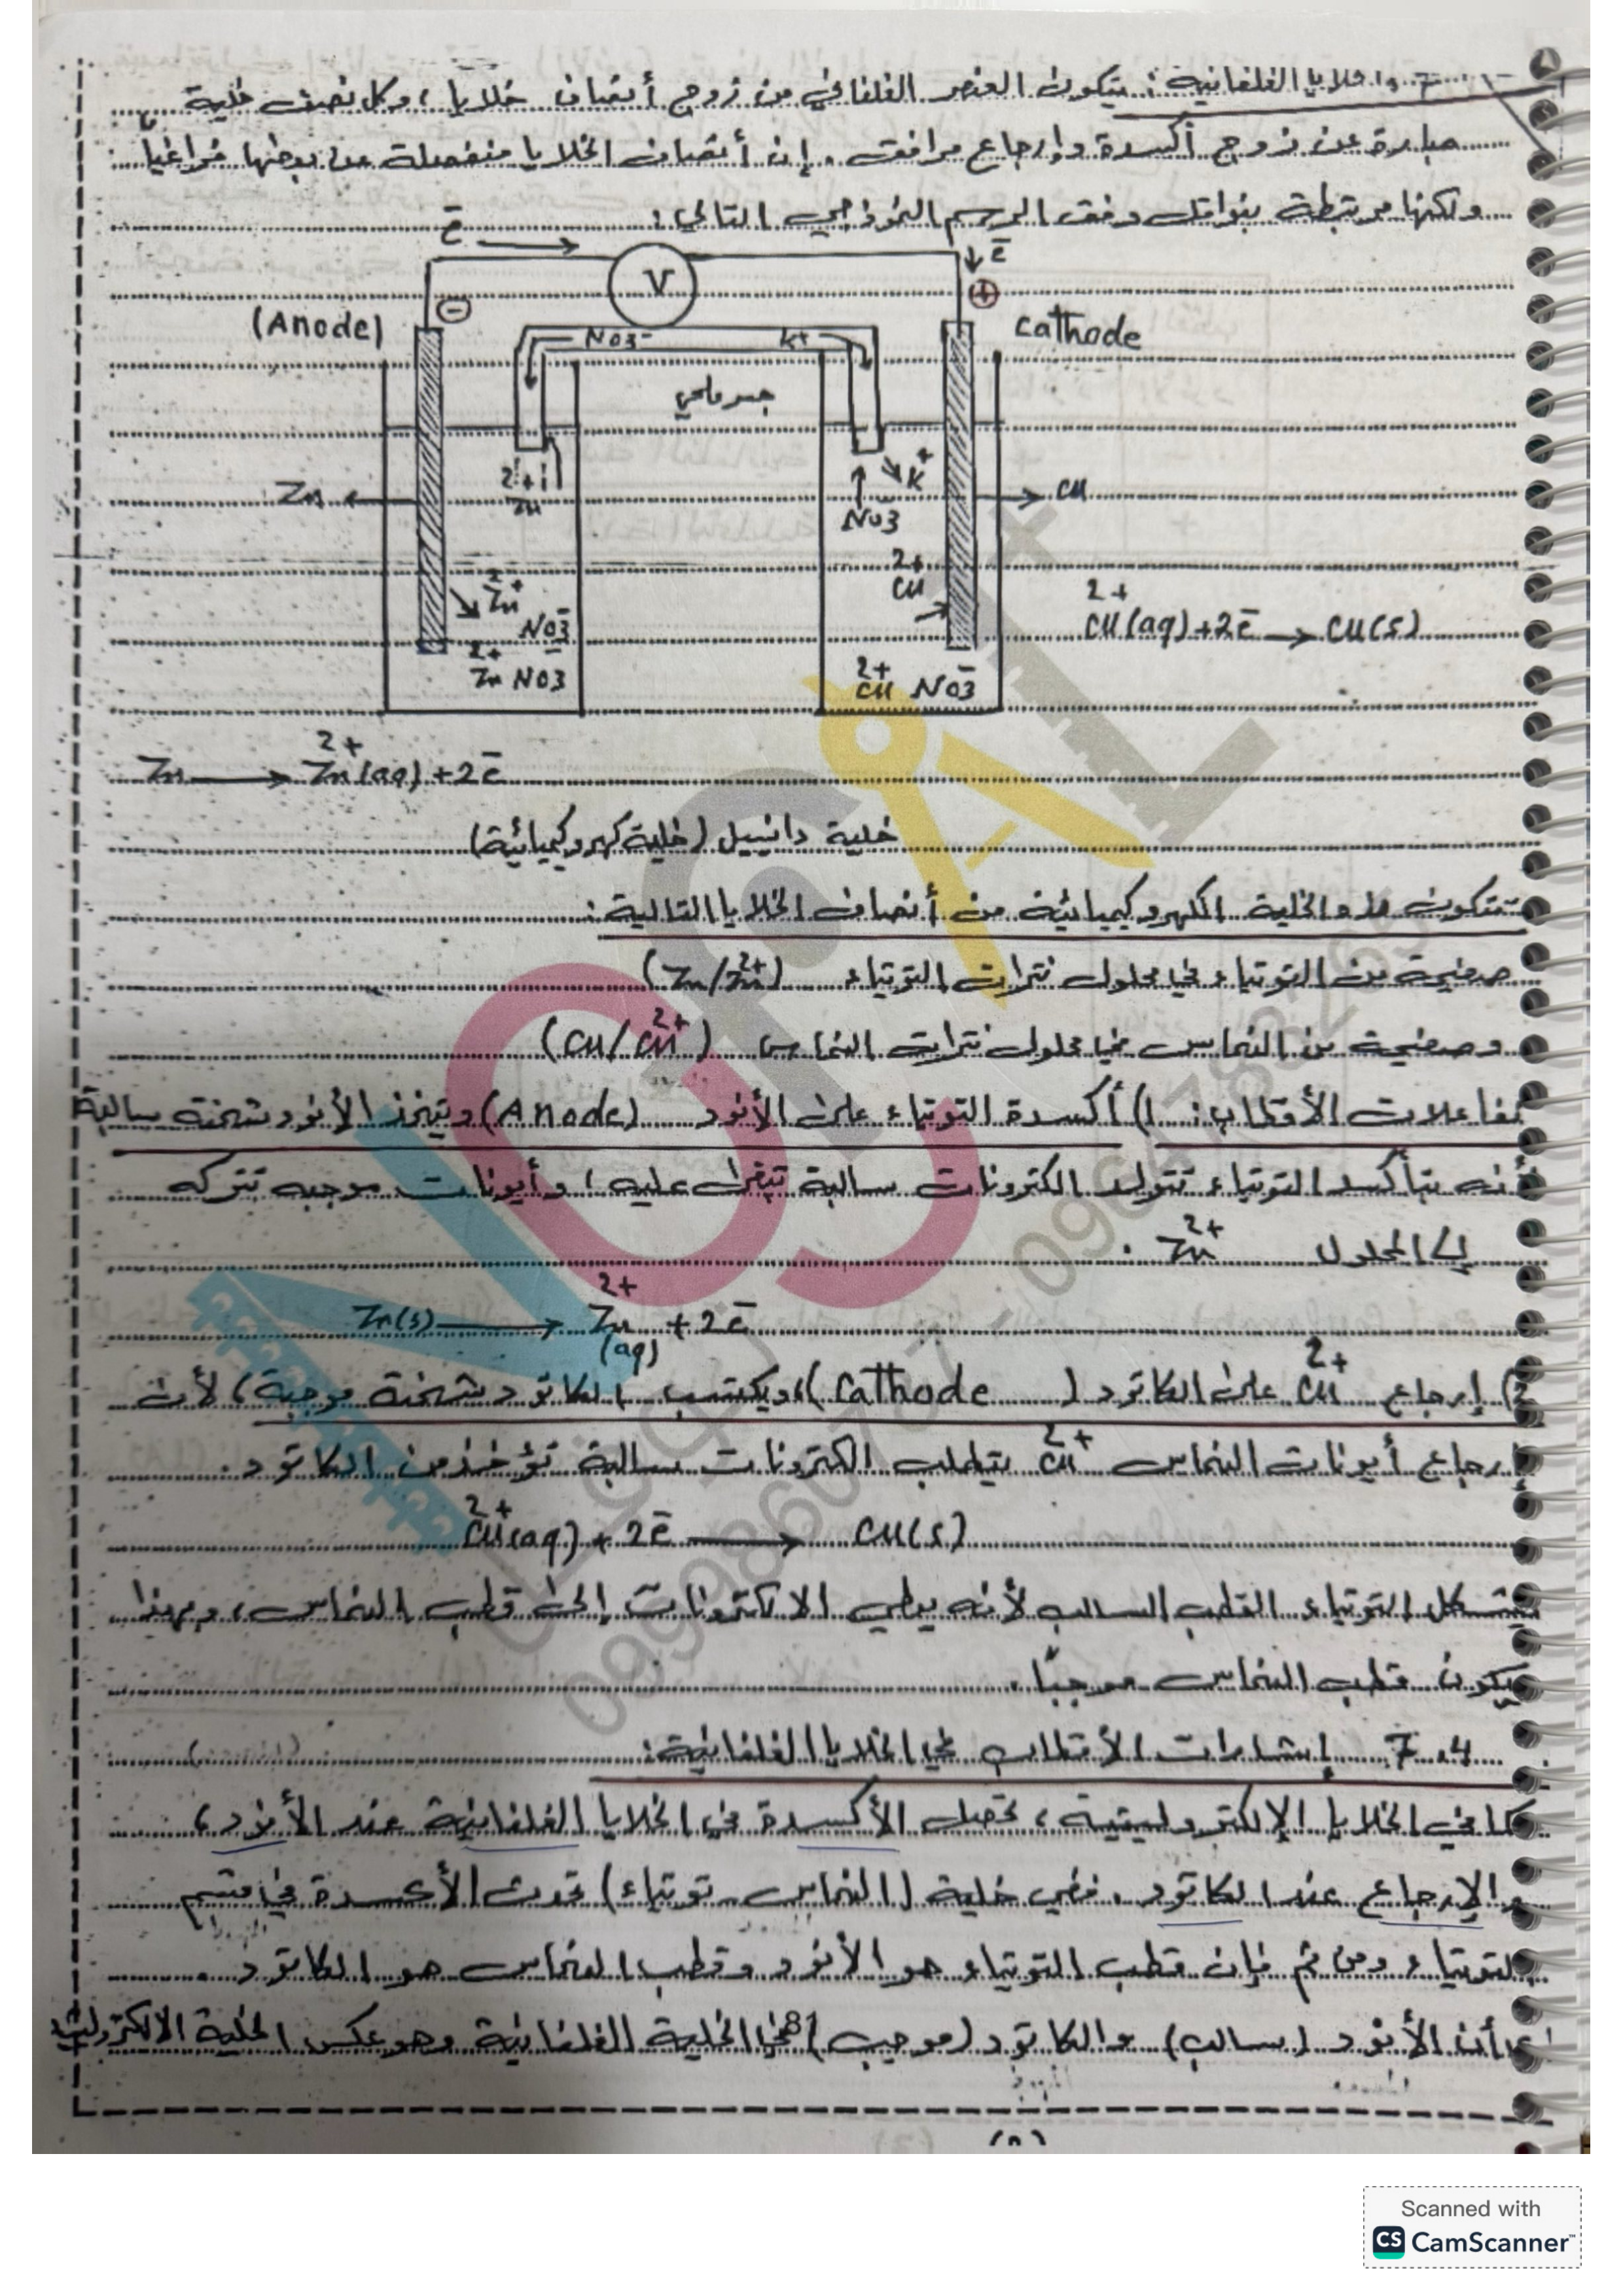 الخلايا الغلفانية: يتكون العنصر الغلفاني من زوج أنصاف خلايا، وكل نصف خلية
عبارة عن زوج أكسدة وإرجاع مرافق. إن أنصاف الخلايا منفصلة عن بعضها فراغياً
ولكنها مرتبطة بنواقل وفق الرسم النموذجي التالي:
e⁻
V
e⁻
(Anode)
−
+
Cathode
NO3⁻
K+
جسر ملحي
Zn
Zn2+
K+
NO3⁻
Cu
Zn2+
NO3⁻
Cu2+
Cu2+(aq) + 2e⁻ → Cu(s)
Zn2+ NO3⁻
Cu2+ NO3⁻
Zn → Zn2+(aq) + 2e⁻
خلية دانييل (خلية كهروكيميائية)
تتكون هذه الخلية الكهروكيميائية من أنصاف الخلايا التالية:
صفيحة من التوتياء في محلول نترات التوتياء (Zn/Zn2+)
وصفيحة من النحاس في محلول نترات النحاس (Cu/Cu2+)
تفاعلات الأقطاب: 1) أكسدة التوتياء على الأنود (Anode) وتتخذ الأنود شحنة سالبة
لأنه بتأكسد التوتياء تتولد الكترونات سالبة تبقى عليه، وأيونات موجبه تتركه
إلى المحلول Zn2+.
Zn(s) → Zn2+(aq) + 2e⁻
2) إرجاع Cu2+ على الكاتود (Cathode)، ويكتسب الكاتود شحنة موجبة، لأن
إرجاع أيونات النحاس Cu2+ يتطلب الكترونات سالبة تؤخذ من الكاتود.
Cu2+(aq) + 2e⁻ → Cu(s)
يتشكل التوتياء القطب السالب لأنه يعطي الالكترونات إلى قطب النحاس، وبهذا
يكون قطب النحاس موجباً.
7.4 إشارات الأقطاب في الخلايا الغلفانية:
كما في الخلايا الإلكتروليتية، تحصل الأكسدة في الخلايا الغلفانية عند الأنود،
والإرجاع عند الكاتود. ففي خلية (النحاس - توتياء) تحدث الأكسدة في قسم
التوتياء ومن ثم فإن قطب التوتياء هو الأنود وقطب النحاس هو الكاتود.
أن الأنود (سالب) والكاتود (موجب) في الخلية الغلفانية وهو عكس الخلية الالكتروليتية
8
Scanned with
CS CamScanner
0998607